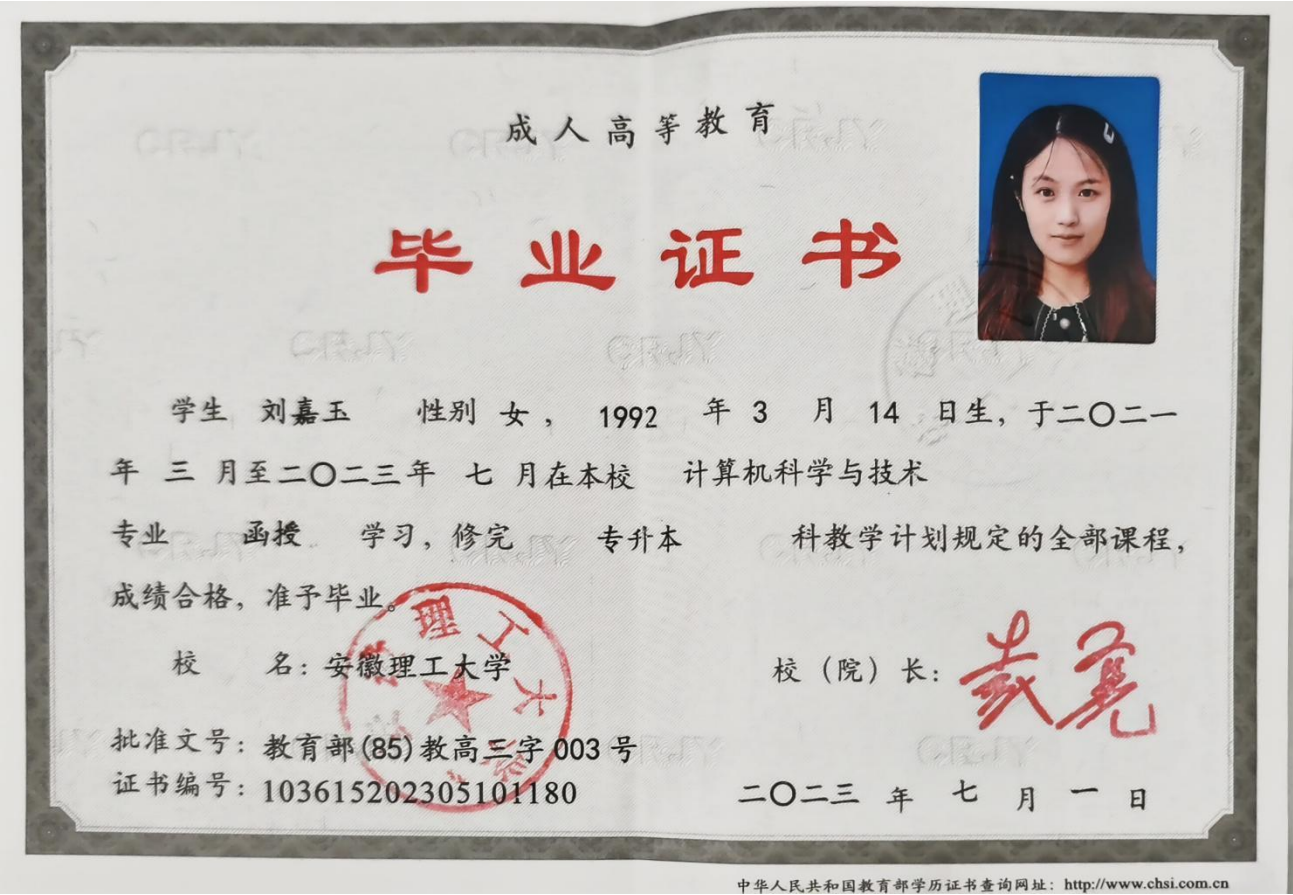 成人高等教育
毕业证书
学生 刘嘉玉 性别 女， 1992 年 3 月 14 日生，于二〇二一
年 三 月至二〇二三年 七 月在本校 计算机科学与技术
专业 函授 学习，修完 专升本 科教学计划规定的全部课程，
成绩合格，准予毕业。
校 名：安徽理工大学
校（院）长：
批准文号：教育部(85)教高三字 003 号
证书编号：103615202305101180
二〇二三 年 七 月 一 日
中华人民共和国教育部学历证书查询网址：http://www.chsi.com.cn